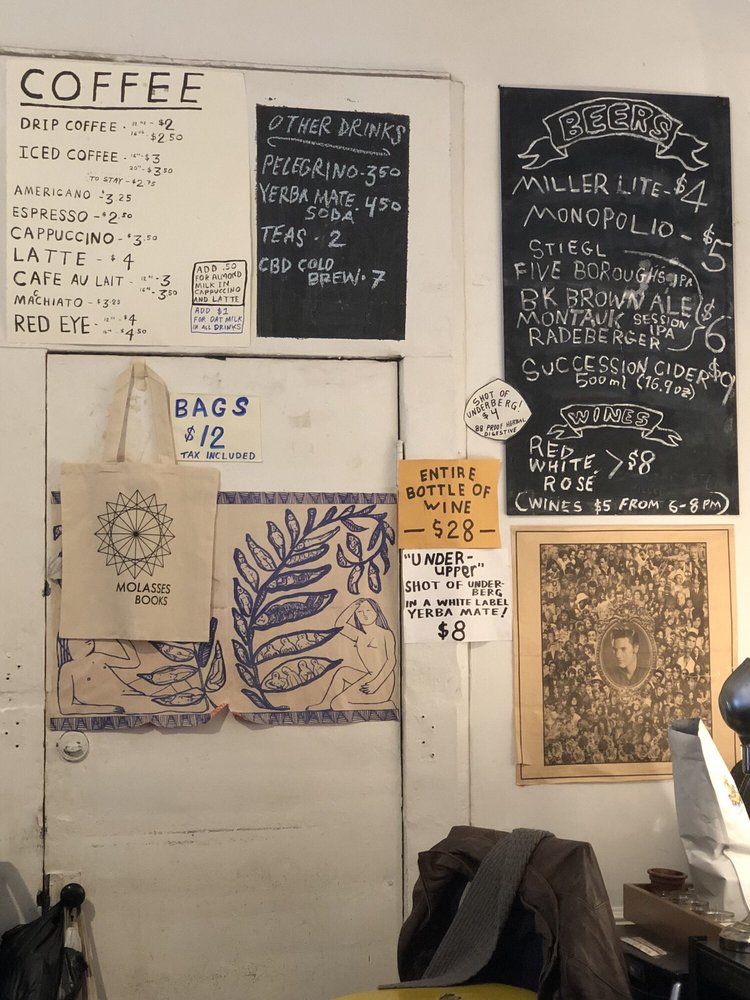 COFFEE
DRIP COFFEE - 12oz - $2
16oz - $2.50
ICED COFFEE - 16oz - $3
20oz - $3.50
TO STAY - $2.75
AMERICANO - $3.25
ESPRESSO - $2.50
CAPPUCCINO - $3.50
LATTE - $4
CAFE AU LAIT - 12oz - 3
16oz - 3.50
MACHIATO - $3.25
C
RED EYE - 12oz - $4
16oz - $4.50
ADD .50
FOR ALMOND
MILK IN
CAPPUCCINO
AND LATTE
ADD $1
FOR OAT MILK
IN ALL DRINKS
OTHER DRINKS
PELEGRINO - 3.50
YERBA MATE
SODA . 4.50
TEAS - 2
CBD COLD
BREW - 7
BEERS
MILLER LITE - $4
MONOPOLIO - $5
STIEGL
FIVE BOROUGHS IPA
BK BROWN ALE
MONTAUK SESSION
IPA
RADEBERGER
$6
SUCCESSION CIDER $9
500ml (16.9oz)
WINES
RED
WHITE > $8
ROSÉ
(WINES $5 FROM 6-8PM)
SHOT OF
UNDERBERG!
$4
88 PROOF HERBAL
DIGESTIVE
BAGS
$12
TAX INCLUDED
ENTIRE
BOTTLE OF
WINE
— $28 —
"UNDER-
UPPER"
SHOT OF UNDER-
BERG
IN A WHITE LABEL
YERBA MATE!
$8
MOLASSES
BOOKS